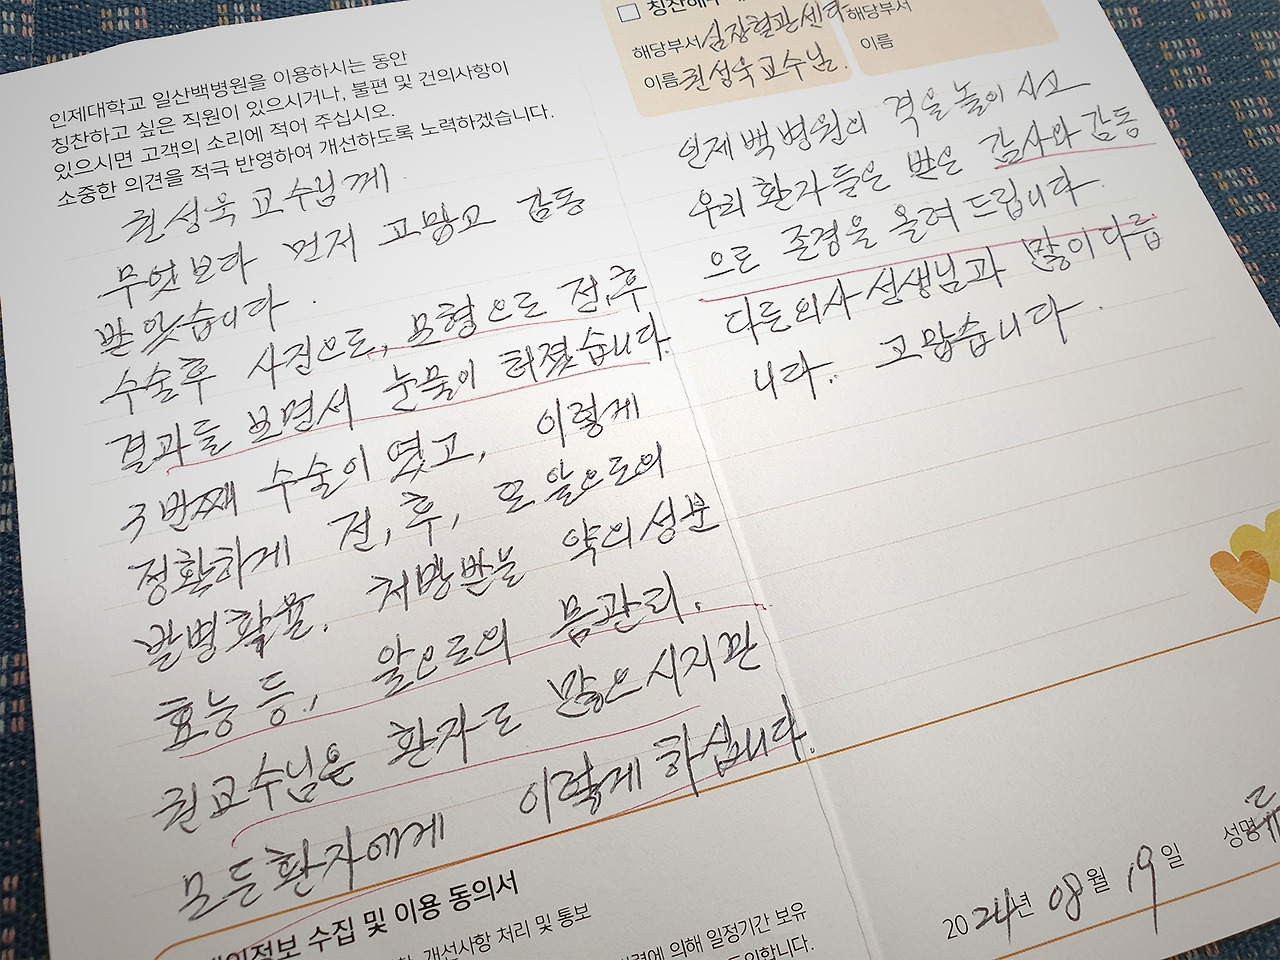 인제대학교 일산백병원을 이용하시는 동안
칭찬하고 싶은 직원이 있으시거나, 불편 및 건의사항이
있으시면 고객의 소리에 적어 주십시오.
소중한 의견을 적극 반영하여 개선하도록 노력하겠습니다.
권성욱 교수님께
무엇보다 먼저 고맙고 감동
받았습니다.
수술후 사진으로, 모형으로 전,후
결과를 보면서 눈물이 터졌습니다.
3번째 수술이였고, 이렇게
정확하게 전,후, 또 앞으로의
발병확율, 처방받는 약의성분
효능 등, 앞으로의 몸관리.
권교수님은 환자도 많으시지만
모든환자에게 이렇게 하십니다.
해당부서 심장혈관센터
이름 권성욱교수님.
해당부서
이름
인제백병원의 격을 높이시고
우리환자들은 받은 감사와 감동
으로 존경을 올려드립니다.
다른의사선생님과 많이다릅
니다. 고맙습니다.
2024년 08월 19일
성명
수집 및 이용 동의서
개선사항 처리 및 통보
의해 일정기간 보유